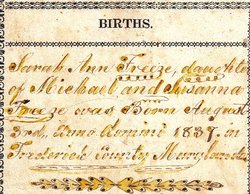 BIRTHS.
Sarah Ann Freize, daughter
of Michael and Susanna
Freize was Born August
3rd, Anno Domini 1837. in
Frederick County Maryland